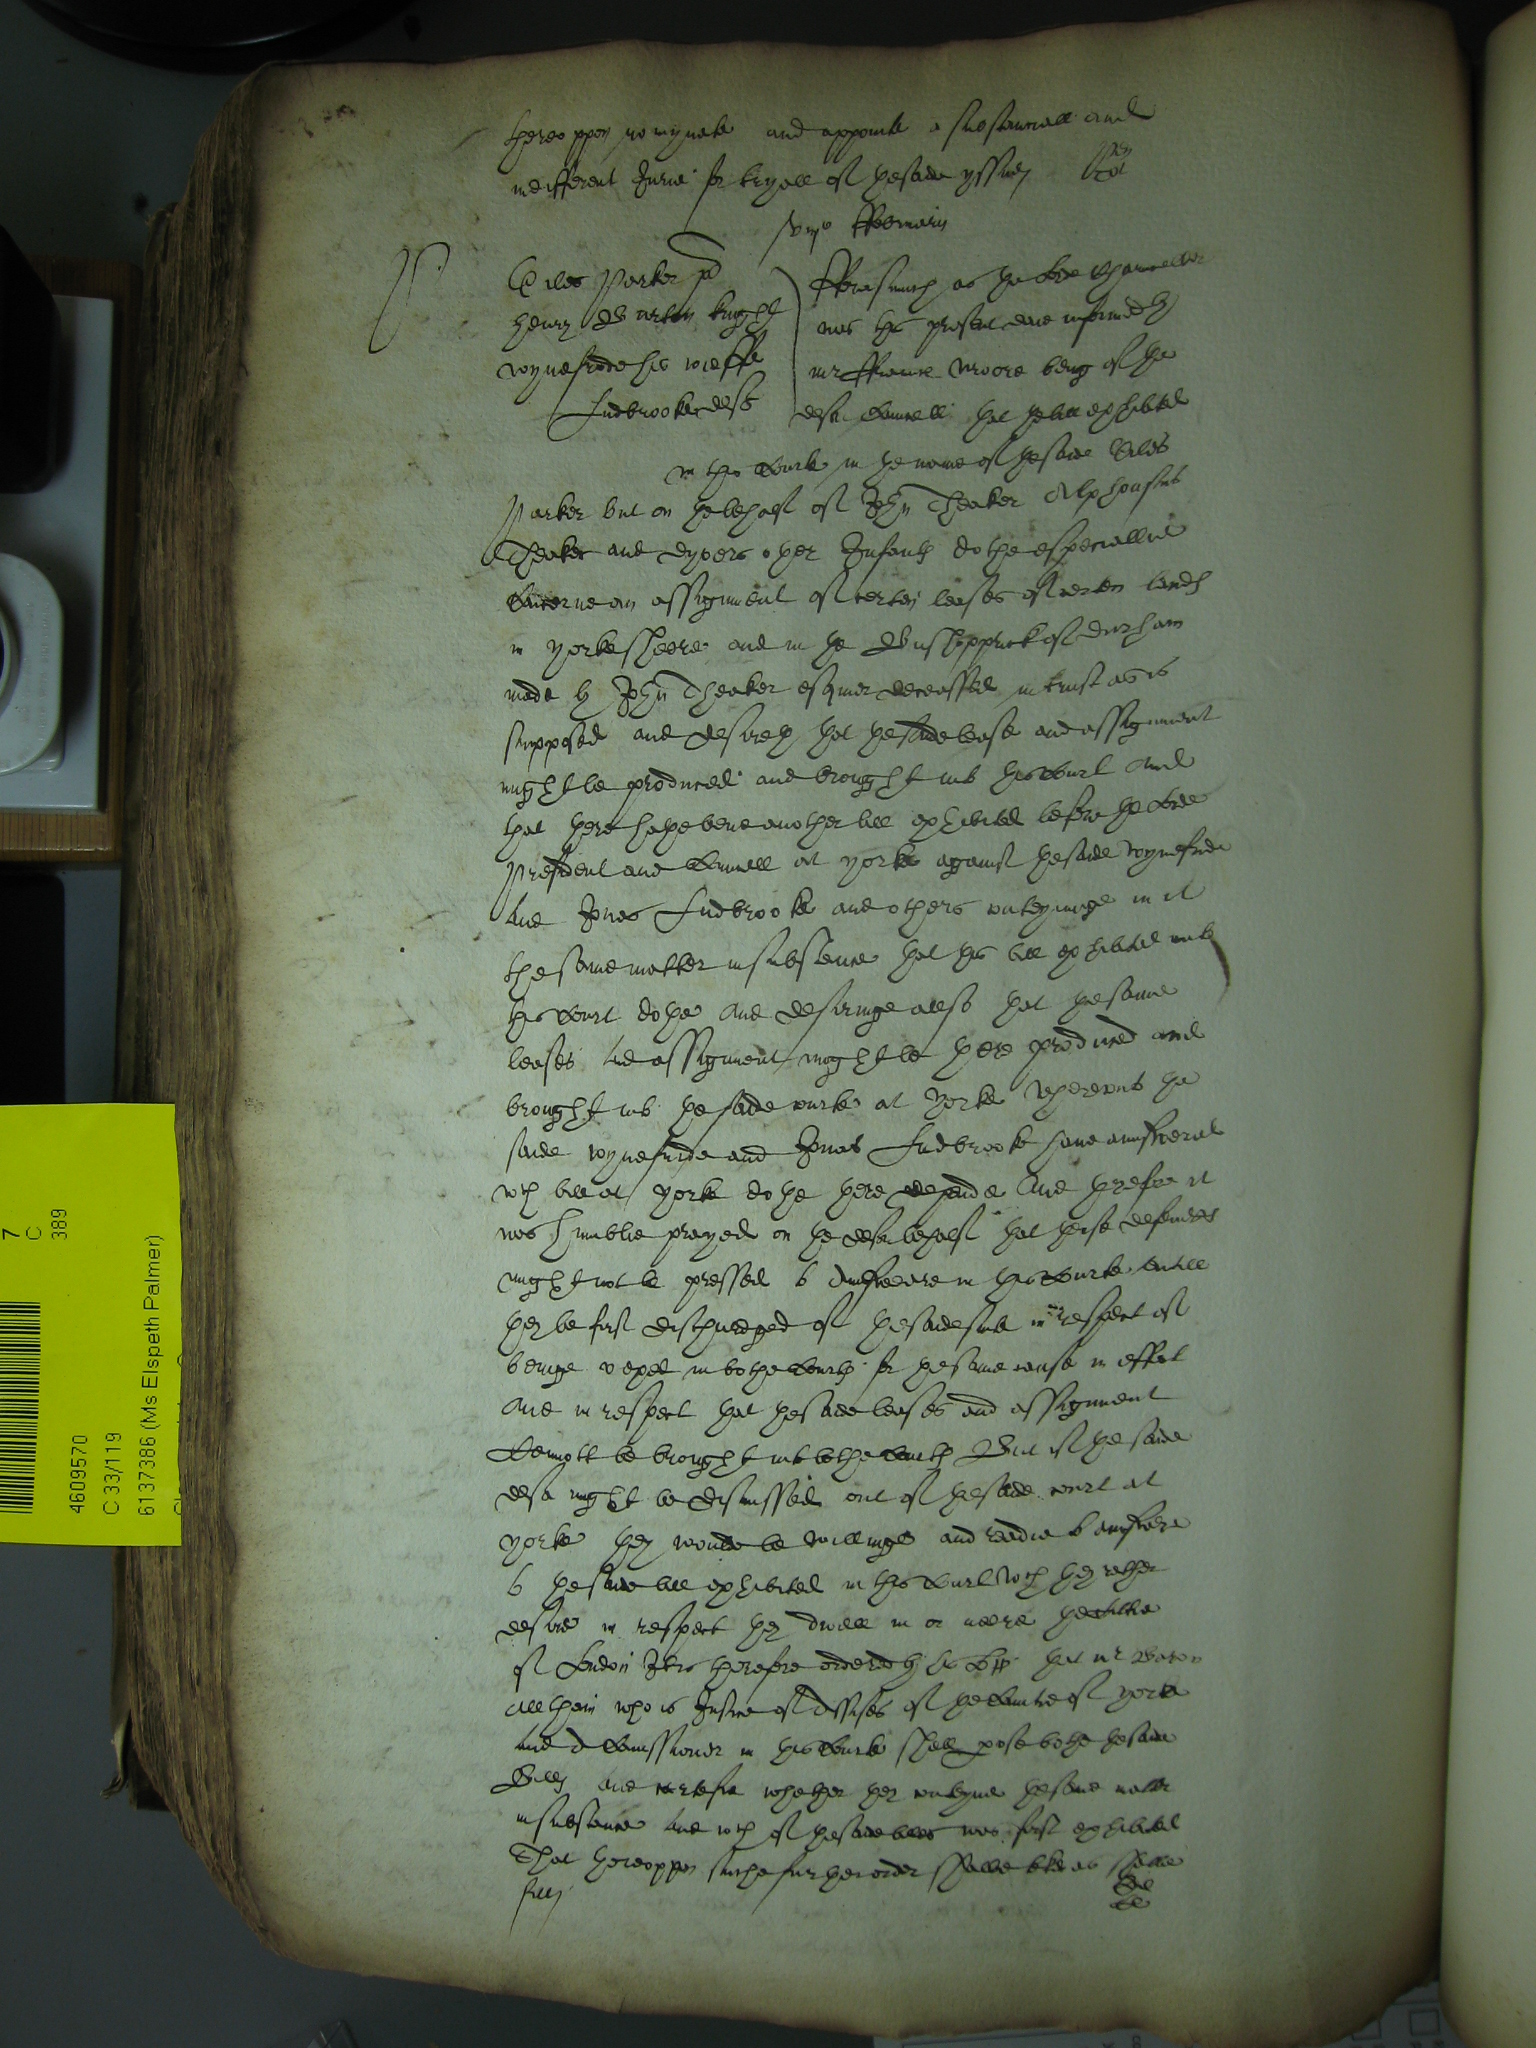 thereoppon nomynate and appointe a substanciall and
indifferent Jurie for tryall of the saide yssues
Februarii
P
Giles Parker pl
Henry knight
wynefride his wieffe
Ludbrooke defts
Fforasmuch as the Lorde Chauncellor
was this present daie informed by
mr Ffrauncis Moore being of the
defts Councell that the bill exhibited
in this Courte in the name of the saide Giles
Parker but on the behalf of John Theaker Alphonsus
Theaker and dyvers other Infants dothe especiallie
concerne an assignment of certen leases of certen lands
in yorkesheere and in the Bushopprick of Durham
made by John Theaker esquier deceassed in trust as is
supposed and desireth that the saide lease and assignment
might be produced and brought into this Court And
that there hathe bene another bill exhibited before the Lorde
President and Councell at yorke against the saide wynefride
and Jonas Ludbrooke and others conteyninge in it
the same matter in substance that this bill exhibited into
this Court dothe and desiringe allso that the same
leases and assignment might be there produced and
brought into the saide courte at Yorke wherunto the
saide wynefride and Jonas Ludbrooke have aunsweared
wch bill at yorke dothe there depende And therefore it
was humblie prayed on the defts behalf that these defendts
might not be pressed to aunsweare in this Courte untill
they be first dischardged of the saide suite in respect of
beinge vexed in bothe Courts for the same cause in effect
and in respect that the saide leases and assignment
Cannott be brought into bothe Courts But if the saide
defts might be dismissed out of the saide court at
yorke they woulde be willinge and readie to aunswere
to the saide bill exhibited in this Court wch they rather
desire in respect they dwell in or neere the Cittie
of London It is therefore ordered by his Lp that mr Baron
who is Justice of Assises of the Countie of yorke
and a Comissioner in this Courte shall peruse bothe the saide
Bills and certefie whether they conteyne the same matter
in substance and wch of the saide billes was first exhibited
That thereoppon suche further order shalbe taken as shalbe
fitt
7
C
389
4609570
C 33/119
6137386 (Ms Elspeth Palmer)